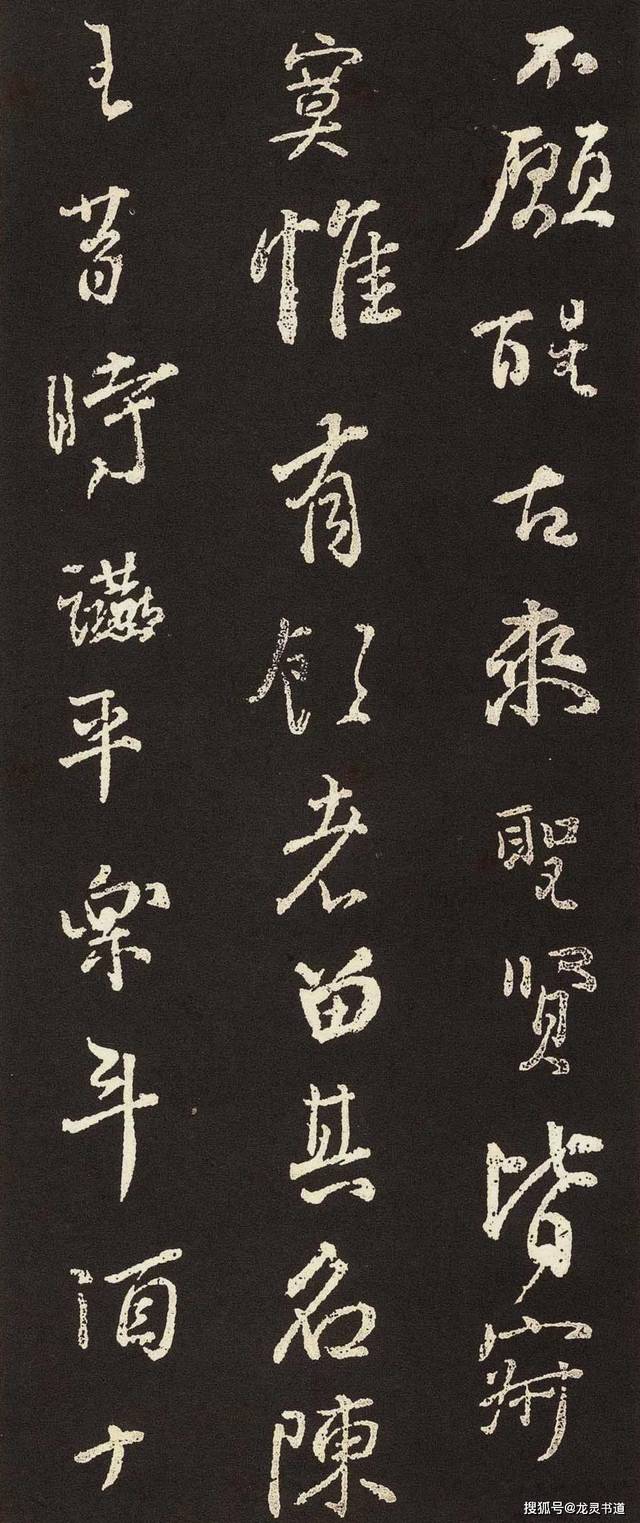 不願醒古來聖賢皆寂
寞惟有飲者留其名陳
王昔時讌平樂斗酒十
搜狐号@龙灵书道